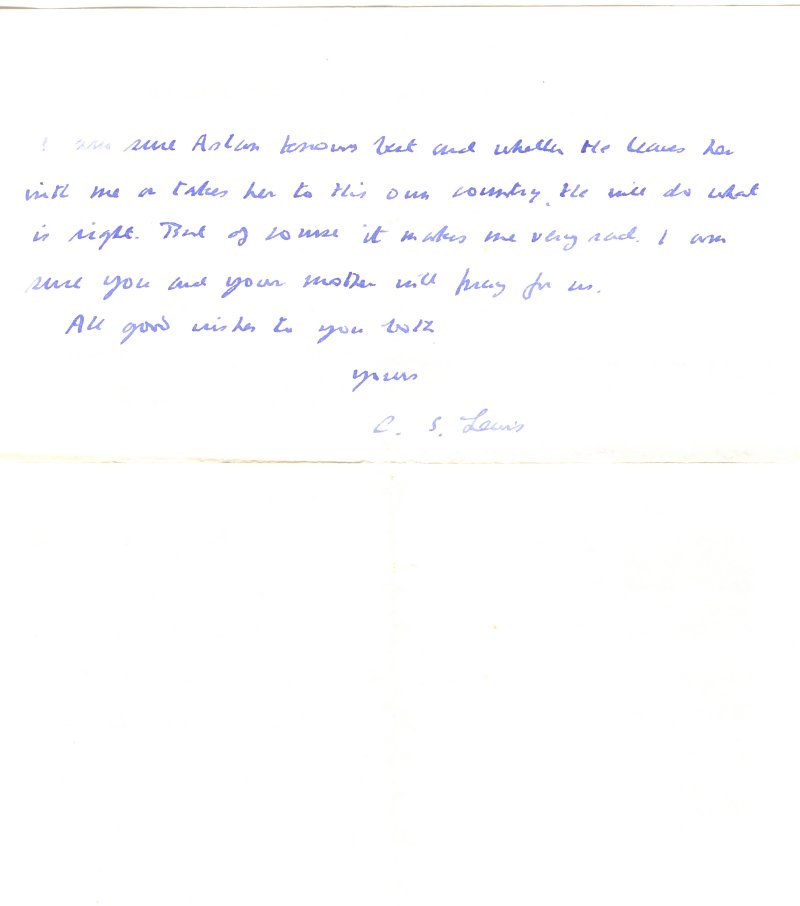 I am sure Aslan knows best and whether He leaves her
with me or takes her to His own country, He will do what
is right. But of course it makes me very sad. I am
sure you and your mother will pray for us.
All good wishes to you both
yours
C. S. Lewis